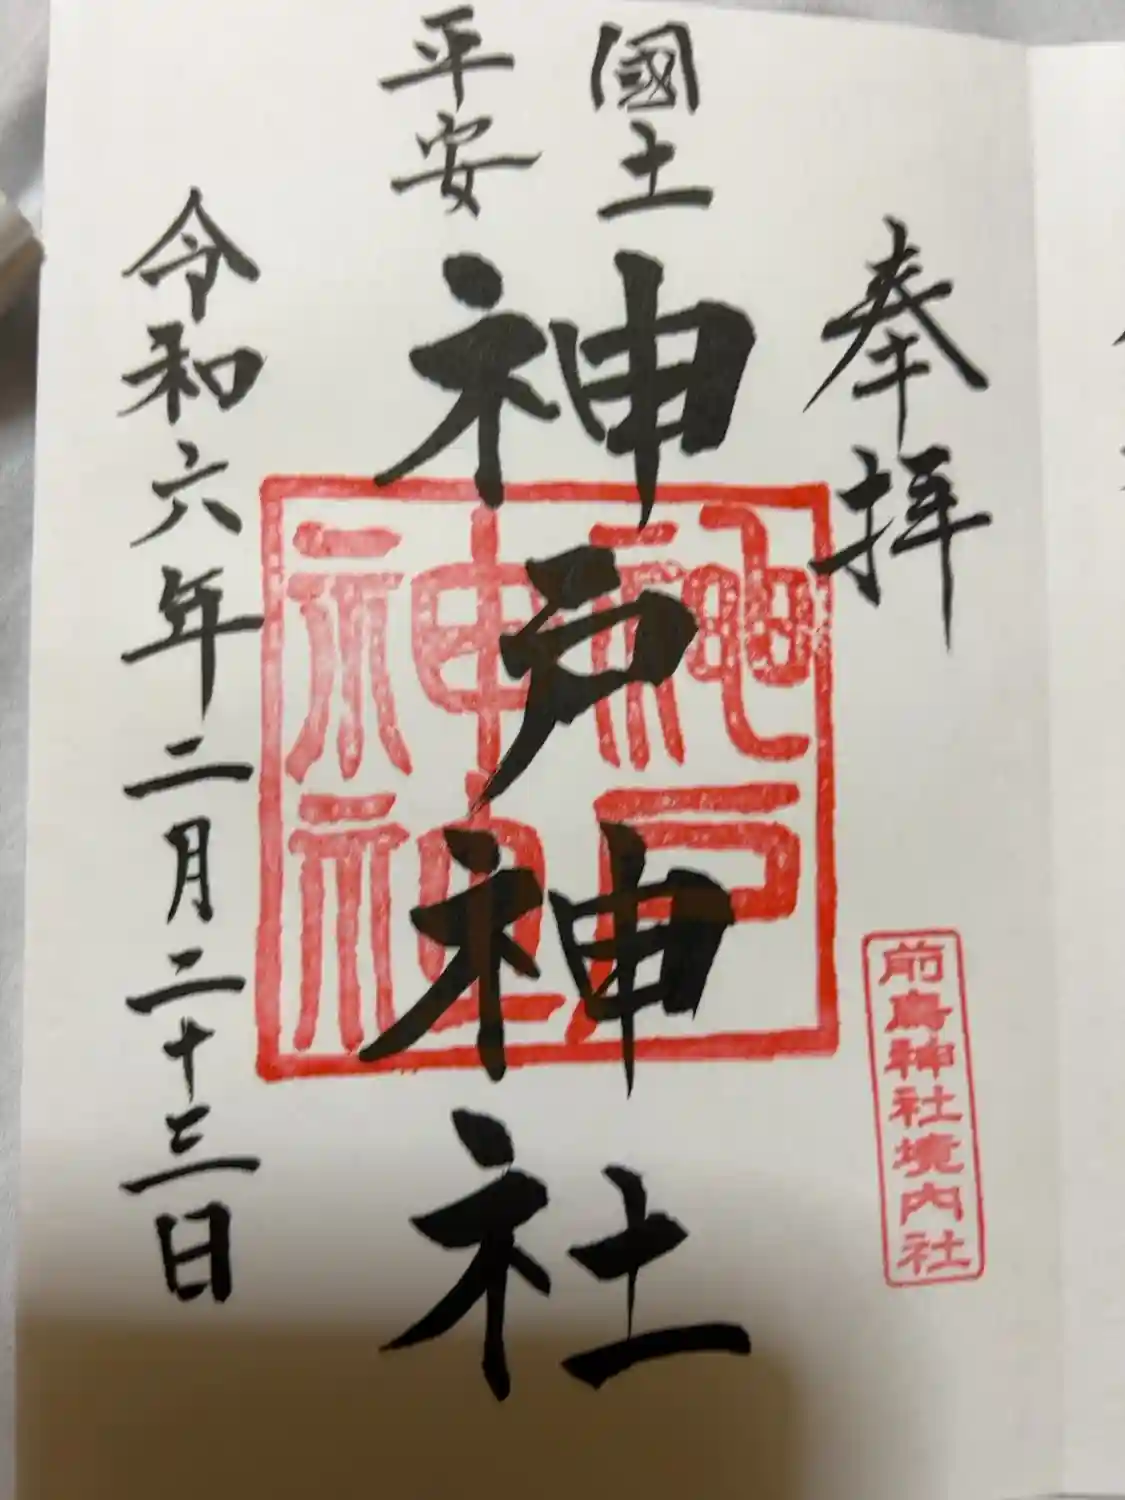 奉拝
國土
平安
神戸神社
神戸
神社
前鳥神社境内社
令和六年二月二十三日